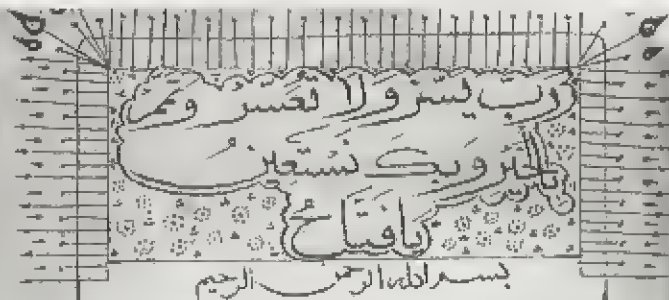 رب يسر ولا تعسر وتمم
بالخير وبك نستعين
يا فتاح
بسم الله الرحمن الرحيم